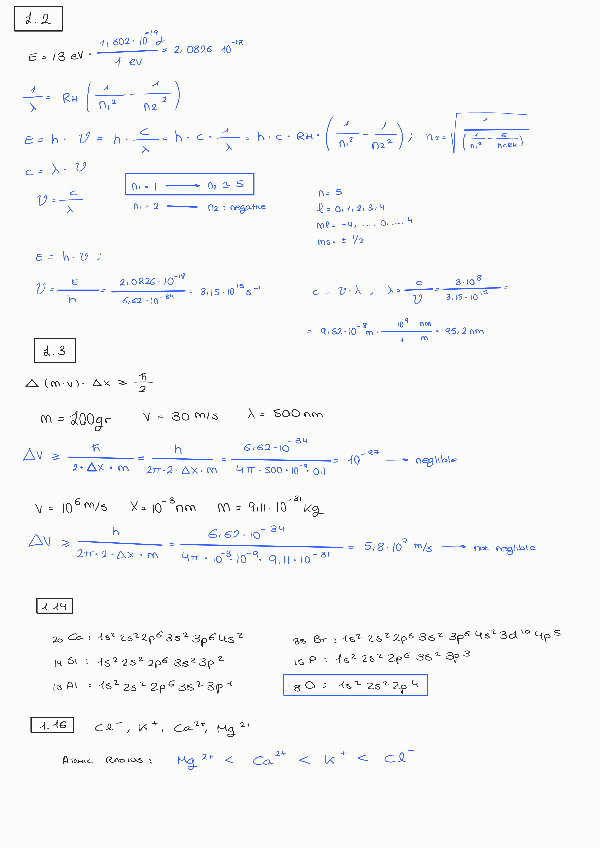 1.2
E = 13 eV · 1,602·10⁻¹⁹ J / 1 eV = 2,0826 · 10⁻¹⁸
1/λ = RH (1/n₁² − 1/n₂²)
E = h · ν = h · c/λ = h · c · 1/λ = h · c · RH · (1/n₁² − 1/n₂²) ; n₂ = √(1/(1/n₁² − E/hcRH))
c = λ · ν
ν = c/λ
n₁ = 1 → n₂ ≥ 5
n₁ = 2 → n₂ : negative
n = 5
l = 0, 1, 2, 3, 4
ml = −4, .... 0, .... 4
ms = ± 1/2
E = h · ν ;
ν = E/h = 2,0826·10⁻¹⁸ / 6,62·10⁻³⁴ = 3,15·10¹⁵ s⁻¹
c = ν · λ , λ = c/ν = 3·10⁸ / 3,15·10¹⁵ =
= 9,52·10⁻⁸ m · 10⁹ nm / 1 m = 95,2 nm
1.3
Δ (m·v) · Δx ≥ ħ/2
m = 200gr v = 30 m/s λ = 500 nm
ΔV ≥ ħ / 2·Δx·m = h / 2π·2·Δx·m = 6,62·10⁻³⁴ / 4π·500·10⁻⁹·0,1 = 10⁻²⁷ → neglible
v = 10⁶ m/s x = 10⁻³ nm m = 9,11·10⁻³¹ kg
ΔV ≥ h / 2π·2·Δx·m = 6,62·10⁻³⁴ / 4π·10⁻³·10⁻⁹·9,11·10⁻³¹ = 5,8·10⁷ m/s → not neglible
1.14
20 Ca : 1s² 2s² 2p⁶ 3s² 3p⁶ 4s²
35 Br : 1s² 2s² 2p⁶ 3s² 3p⁶ 4s² 3d¹⁰ 4p⁵
14 Si : 1s² 2s² 2p⁶ 3s² 3p²
15 P : 1s² 2s² 2p⁶ 3s² 3p³
13 Al : 1s² 2s² 2p⁶ 3s² 3p¹
8 O : 1s² 2s² 2p⁴
1.16 Cl⁻, K⁺, Ca²⁺, Mg²⁺
Atomic Radius : Mg²⁺ < Ca²⁺ < K⁺ < Cl⁻